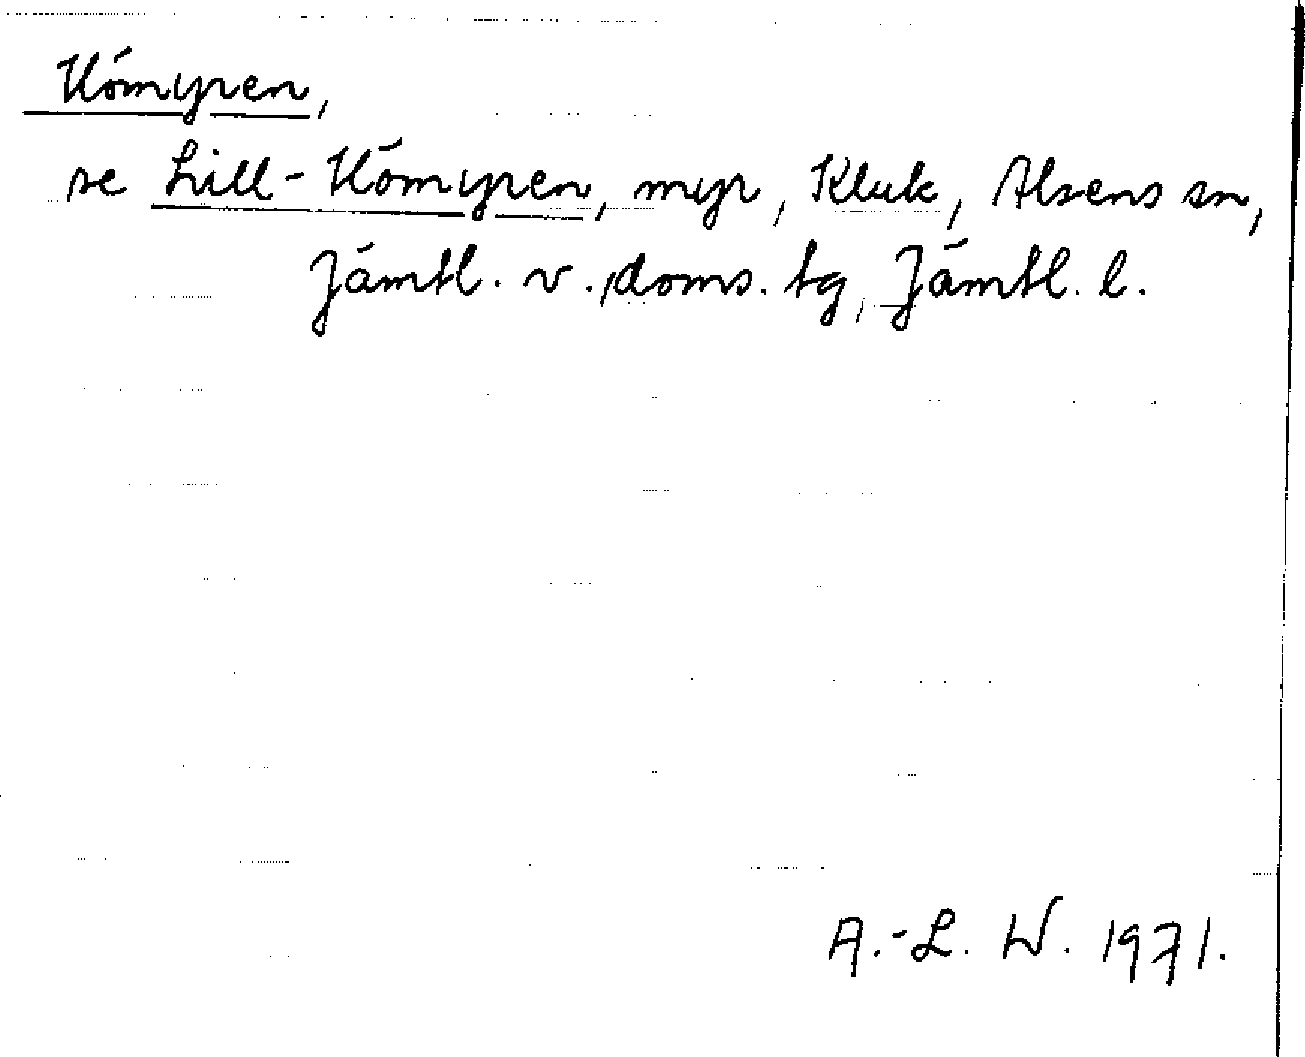 Hömyren,
se Lill-Hömyren, myr, Kluk, Alsens sn,
Jämtl. v. doms. tg, Jämtl. l.
A.-L. W. 1971.